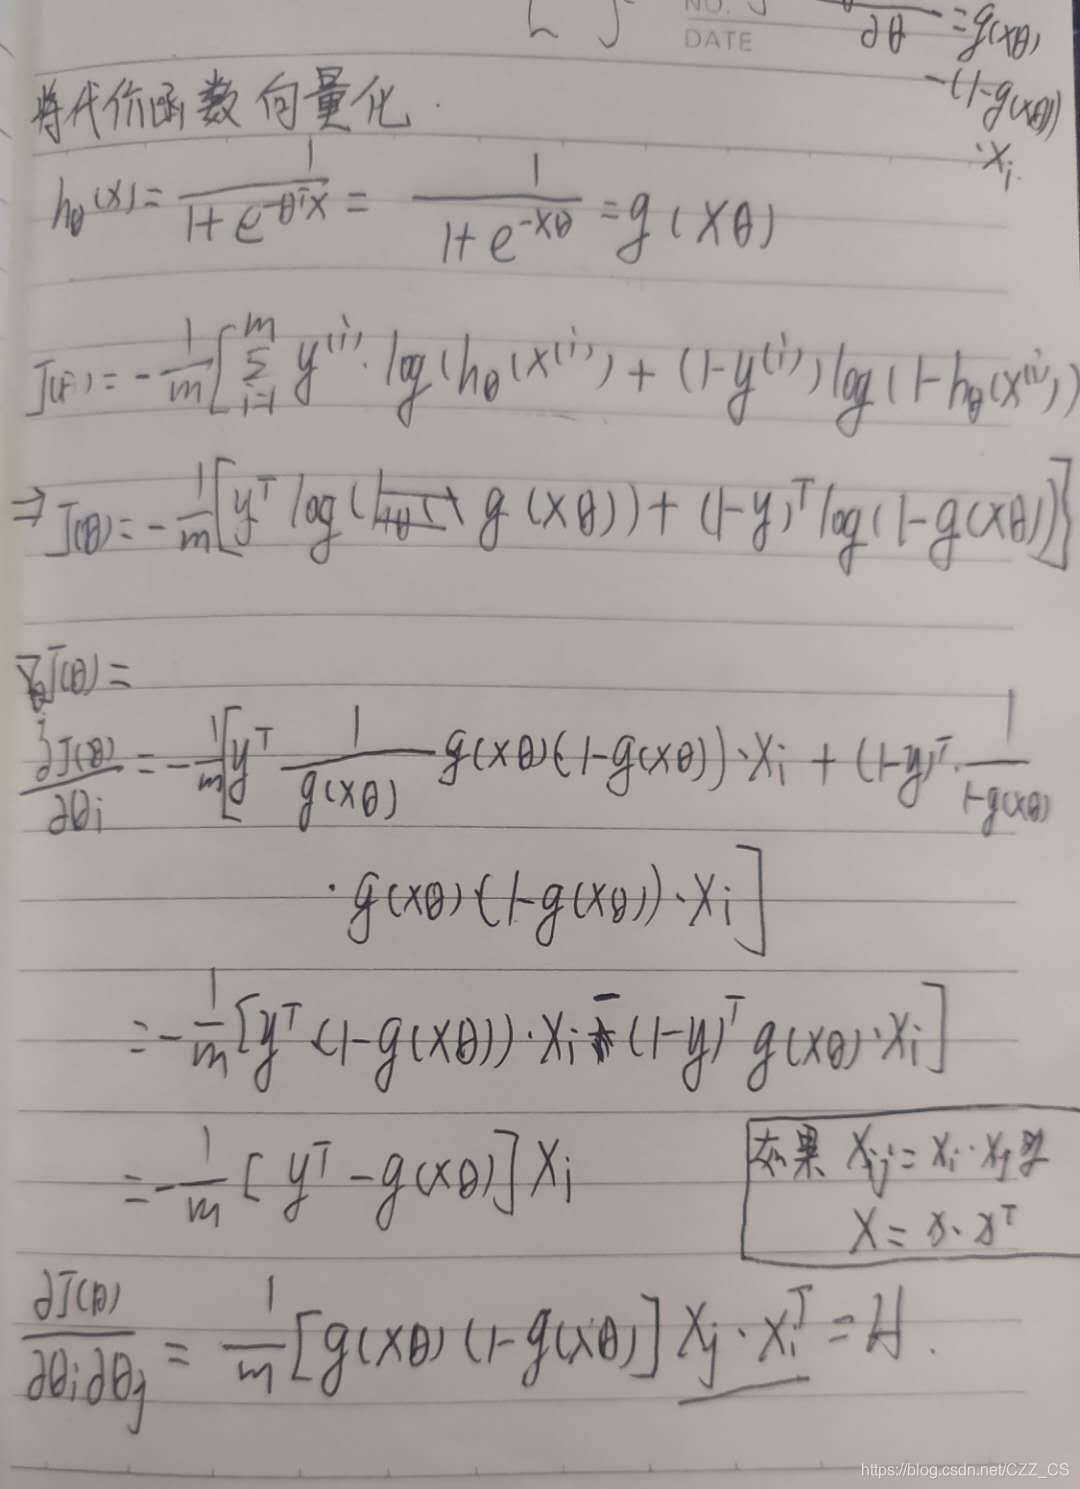 NO.
DATE
∂θ = g(xθ)
-(1-g(xθ))
·xᵢ
将代价函数向量化.
h_θ(x) = 1/(1+e^(-θᵀx)) = 1/(1+e^(-Xθ)) = g(Xθ)
J(θ) = -1/m [ Σ_{i=1}^{m} y⁽ⁱ⁾·log(h_θ(x⁽ⁱ⁾) + (1-y⁽ⁱ⁾)log(1-h_θ(x⁽ⁱ⁾))
⇒ J(θ) = -1/m [yᵀ log(g(xθ)) + (1-y)ᵀ log(1-g(xθ))]
∇_θJ(θ) =
∂J(θ)/∂θᵢ = -1/m [yᵀ 1/g(xθ) g(xθ)(1-g(xθ))·xᵢ + (1-y)ᵀ· 1/(1-g(xθ))
·g(xθ)(1-g(xθ))·xᵢ]
= -1/m [yᵀ(1-g(xθ))·xᵢ - (1-y)ᵀ g(xθ)·xᵢ]
= -1/m [yᵀ - g(xθ)]xᵢ
如果 Xᵢⱼ = xᵢ·xⱼ
X = x·xᵀ
∂J(θ)/∂θᵢ∂θⱼ = 1/m [g(xθ)(1-g(xθ)] xⱼ·xᵢᵀ = H.
https://blog.csdn.net/CZZ_CS